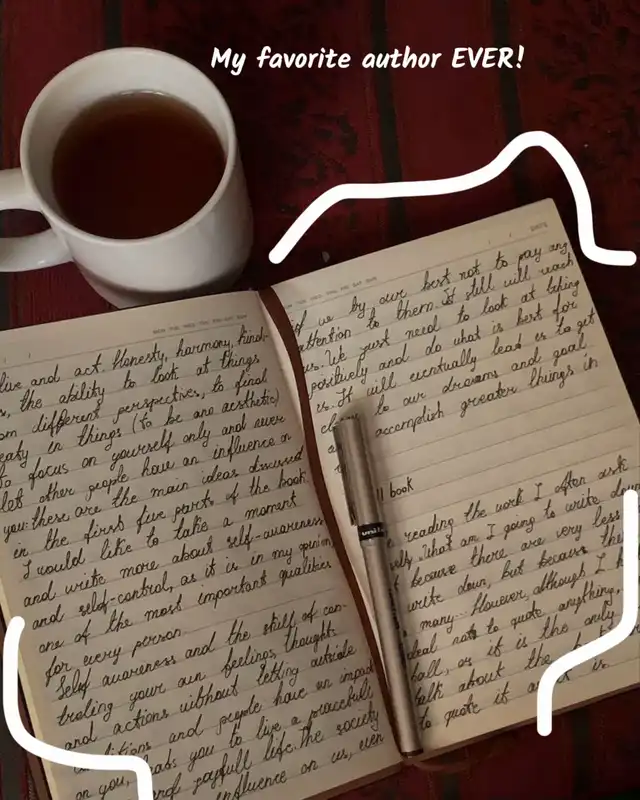 My favorite author EVER!
live and act. Honesty, harmony, kind-
s, the ability to look at things
om different perspectives, to find
eauty in things (to be are aesthetic)
to focus on yourself only and never
let other people have an influence on
you. these are the main ideas discussed
in the first five parts of the book.
I would like to take a moment
and write more about self-awareness
and self-control, as it is in my opinion,
one of the most important qualities
for every person.
Self awareness and the skill of con-
troling your own feelings, thoughts
and actions without letting outside
and people have an impact
on you, leads you to live a peacefull
and joyfull life. The society
influence on us, even
DATE
if we by our best not to pay any
attention to them. it still will reach
us. We just need to look at thing
positively and do what is best for
us. It will eventually lead is to get
to our dreams and goal
accomplish greater things in
ll book
reading the work I often ask
what am I going to write down
because there are very less
write down, but because the
many. However, although I
deal not to quote anything,
all, or it is the only
talk about the
to quote it is.
uni